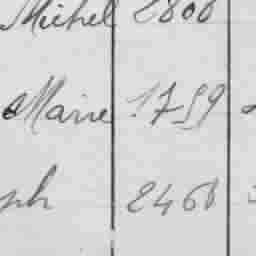 Michel 2800
Marie 1759
ph 2460